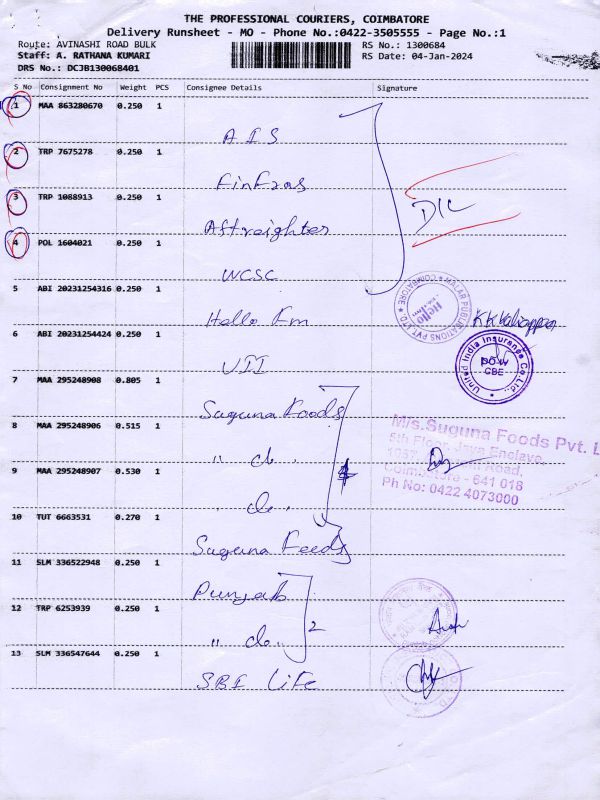 THE PROFESSIONAL COURIERS, COIMBATORE
Delivery Runsheet - MO - Phone No.:0422-3505555 - Page No.:1
Route: AVINASHI ROAD BULK
RS No.: 1300684
Staff: A. RATHANA KUMARI
RS Date: 04-Jan-2024
DRS No.: DCJB130068401
S No Consignment No Weight PCS Consignee Details Signature
1 MAA 863280670 0.250 1
AIS
2 TRP 7675278 0.250 1
FinFras
3 TRP 1088913 0.250 1
Aftreighter
DIL
4 POL 1604021 0.250 1
WCSC
5 ABI 20231254316 0.250 1
Hello Fm
MALAR PUBLICATIONS PVT LTD. ★ COIMBATORE ★
Hello
K.K.Kaliappan
6 ABI 20231254424 0.250 1
UII
United India Insurance Co. Ltd.
CBE
7 MAA 295248908 0.805 1
Suguna Foods
8 MAA 295248906 0.515 1
" do.
M/s.Suguna Foods Pvt. L
5th Floor, Jaya Enclave
1057, Road,
Coimbatore - 641 018
Ph No: 0422 4073000
9 MAA 295248907 0.530 1
do..
4
10 TUT 6663531 0.270 1
Suguna Feeds
11 SLM 336522948 0.250 1
Punjab
12 TRP 6253939 0.250 1
" do.. 2
13 SLM 336547644 0.250 1
SBI Life